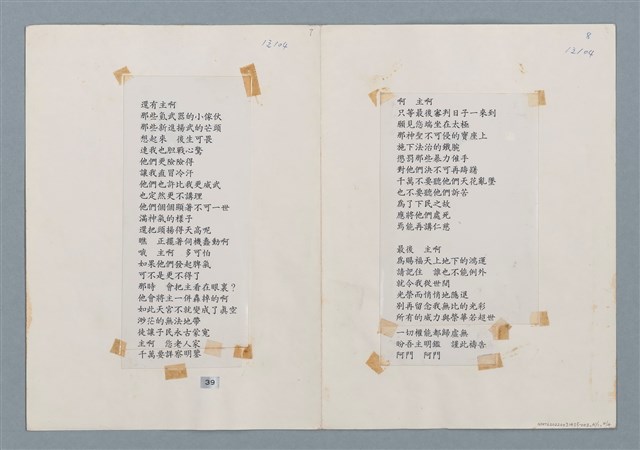 7
12/04
還有主啊
那些氫武器的小傢伙
那些新進揚武的芒頭
想起來　後生可畏
連我也胆戰心驚
他們更險險得
讓我直冒冷汗
他們也許比我更威武
也定然更不講理
他們個個顯著不可一世
滿神氣的樣子
還把頭揚得天高呢
瞧　正擺著伺機蠢動啊
哦　主啊　多可怕
如果他們發起脾氣
可不是更不得了
那時　會把主看在眼裏？
他會將主一併轟掉的啊
如此天宮不就變成了真空
渺茫的無法地帶
徒讓子民永古蒙冤
主啊　您老人家
千萬要詳察明鑒
39
8
12/04
啊　主啊
只等最後審判日子一來到
願見您端坐在太極
那神聖不可侵的寶座上
施下法治的鐵腕
懲罰那些暴力傕手
對他們決不可再躊躇
千萬不要聽他們天花亂墜
也不要聽他們訴苦
爲了下民之故
應將他們處死
焉能再講仁慈
最後　主啊
爲賜福天上地下的鴻運
請記住　誰也不能例外
就令我從世間
光榮而悄悄地隱退
別再留念我無比的光彩
所有的威力與榮華若超世
一切權能都歸虛無
盼吾主明鑑　謹此禱告
阿門　阿門